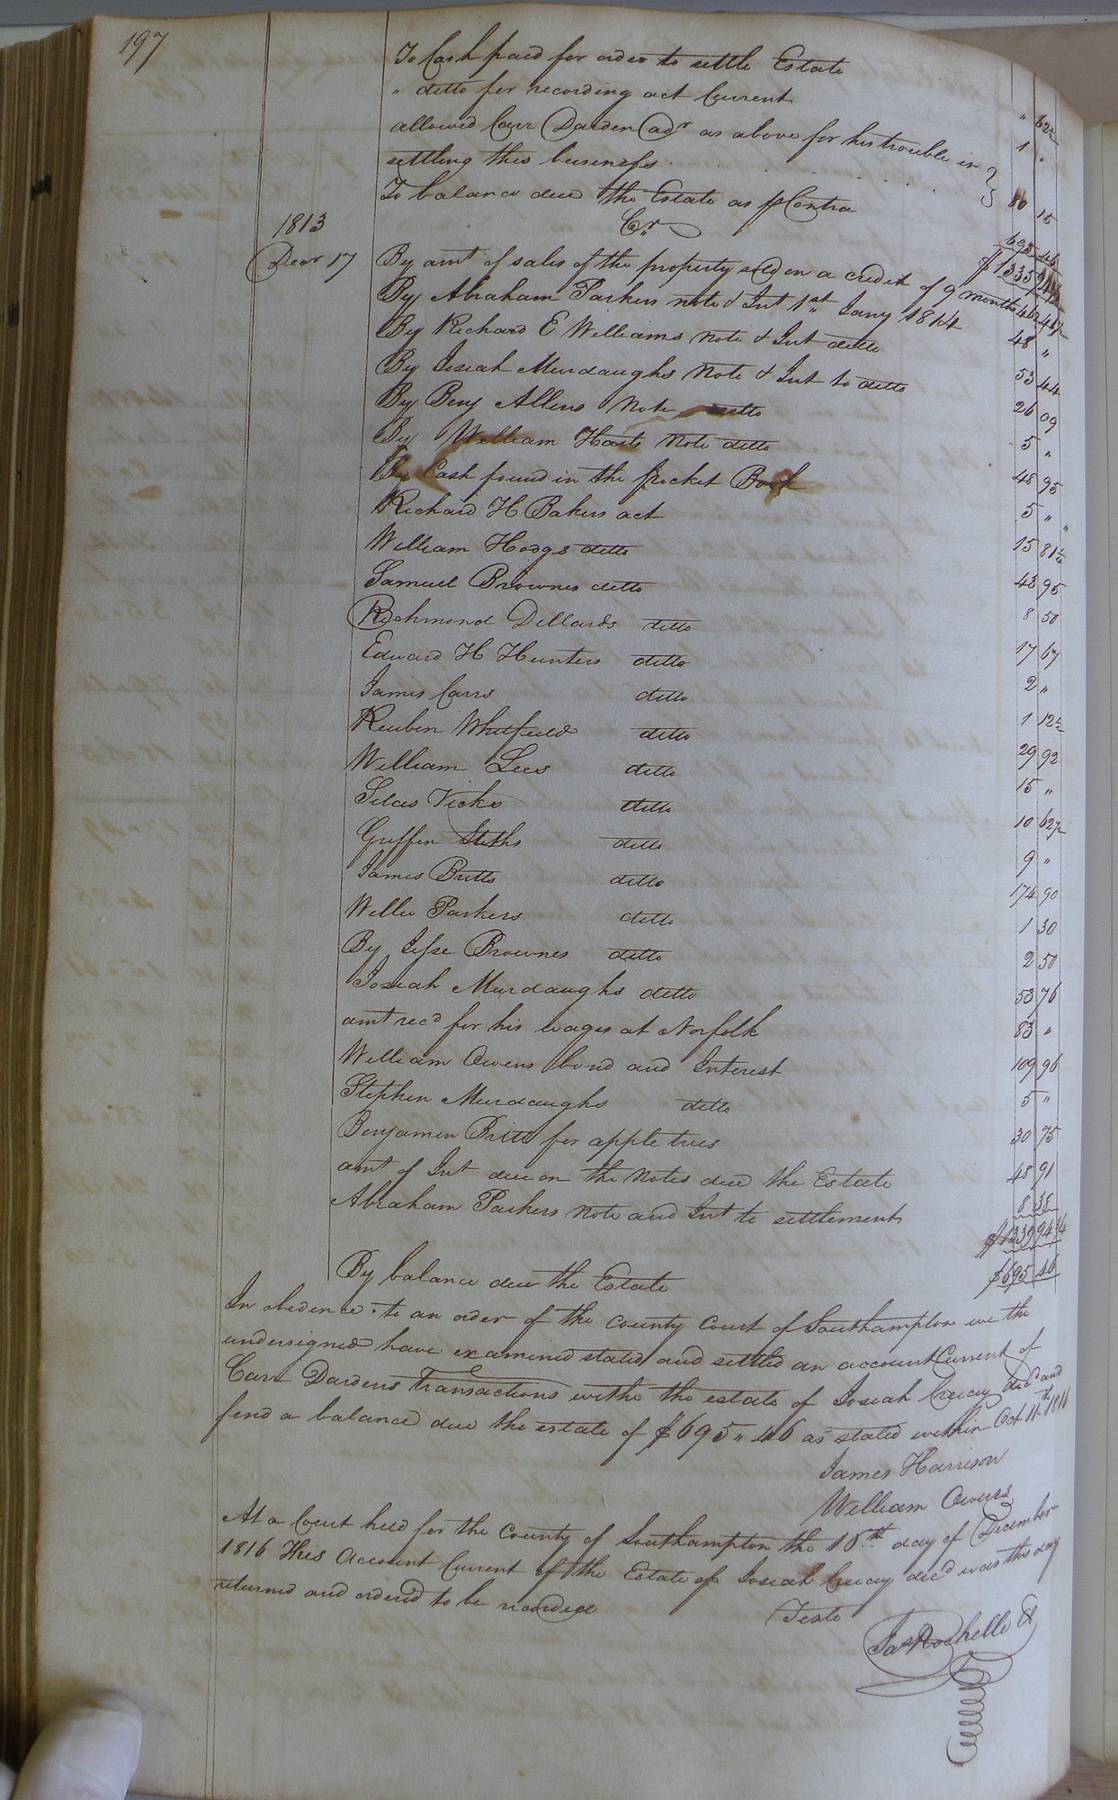 197
To Cash paid for order to settle Estate " 62½
" ditto for recording act Current 1 "
allowed Carr Darden adr as above for his trouble in
settling this business 80 15
To balance due the Estate as p Contra 695 46
$1335 94
1813 Cr
Decr 17 By amt of sales of the property sold on a credit of 9 months
By Abraham Parkers note & Int 1st Jany 1814 48 "
By Richard E Williams note & Int ditto 53 44
By Josiah Murdaughs Note & Int to ditto 26 09
By Benj Allens Note ditto 5 "
By William Harts Note ditto 48 95
By Cash found in the pocket Book 5 "
Richard H Bakers act 15 81½
William Hodgs ditto 43 95
Samuel Brownes ditto 8 50
Richmond Dillards ditto 17 67
Edward H Hunters ditto 2 "
James Carrs ditto 1 12½
Reuben Whitfield ditto 29 92
William Lees ditto 15 "
Silas Vicks ditto 10 62½
Griffen Stiths ditto 9 "
James Britts ditto 174 90
Willie Parkers ditto 1 30
By Jesse Brownes ditto 2 50
Josiah Murdaughs ditto 53 76
amt recd for his wages at Norfolk 83 "
William Owens bond and Interest 109 96
Stephen Murdaughs ditto 5 "
Benjamin Britt for apple trees 30 75
amt of Int due on the Notes due the Estate 48 91
Abraham Parkers note and Int to settlement 8 35
By balance due the Estate $695 46
In obedience to an order of the County Court of Southampton we the
undersigned have examined stated and settled an account Current of
Carr Dardens transactions withe the estate of Josiah decd and
find a balance due the estate of $695 " 46 as stated within Oct 11th 1816
James Harrison
William Owens
At a Court held for the County of Southampton the 16th day of December
1816 This Account Current of the Estate of Josiah decd was this day
returned and orderd to be recorded
Teste
Jas Rochelle